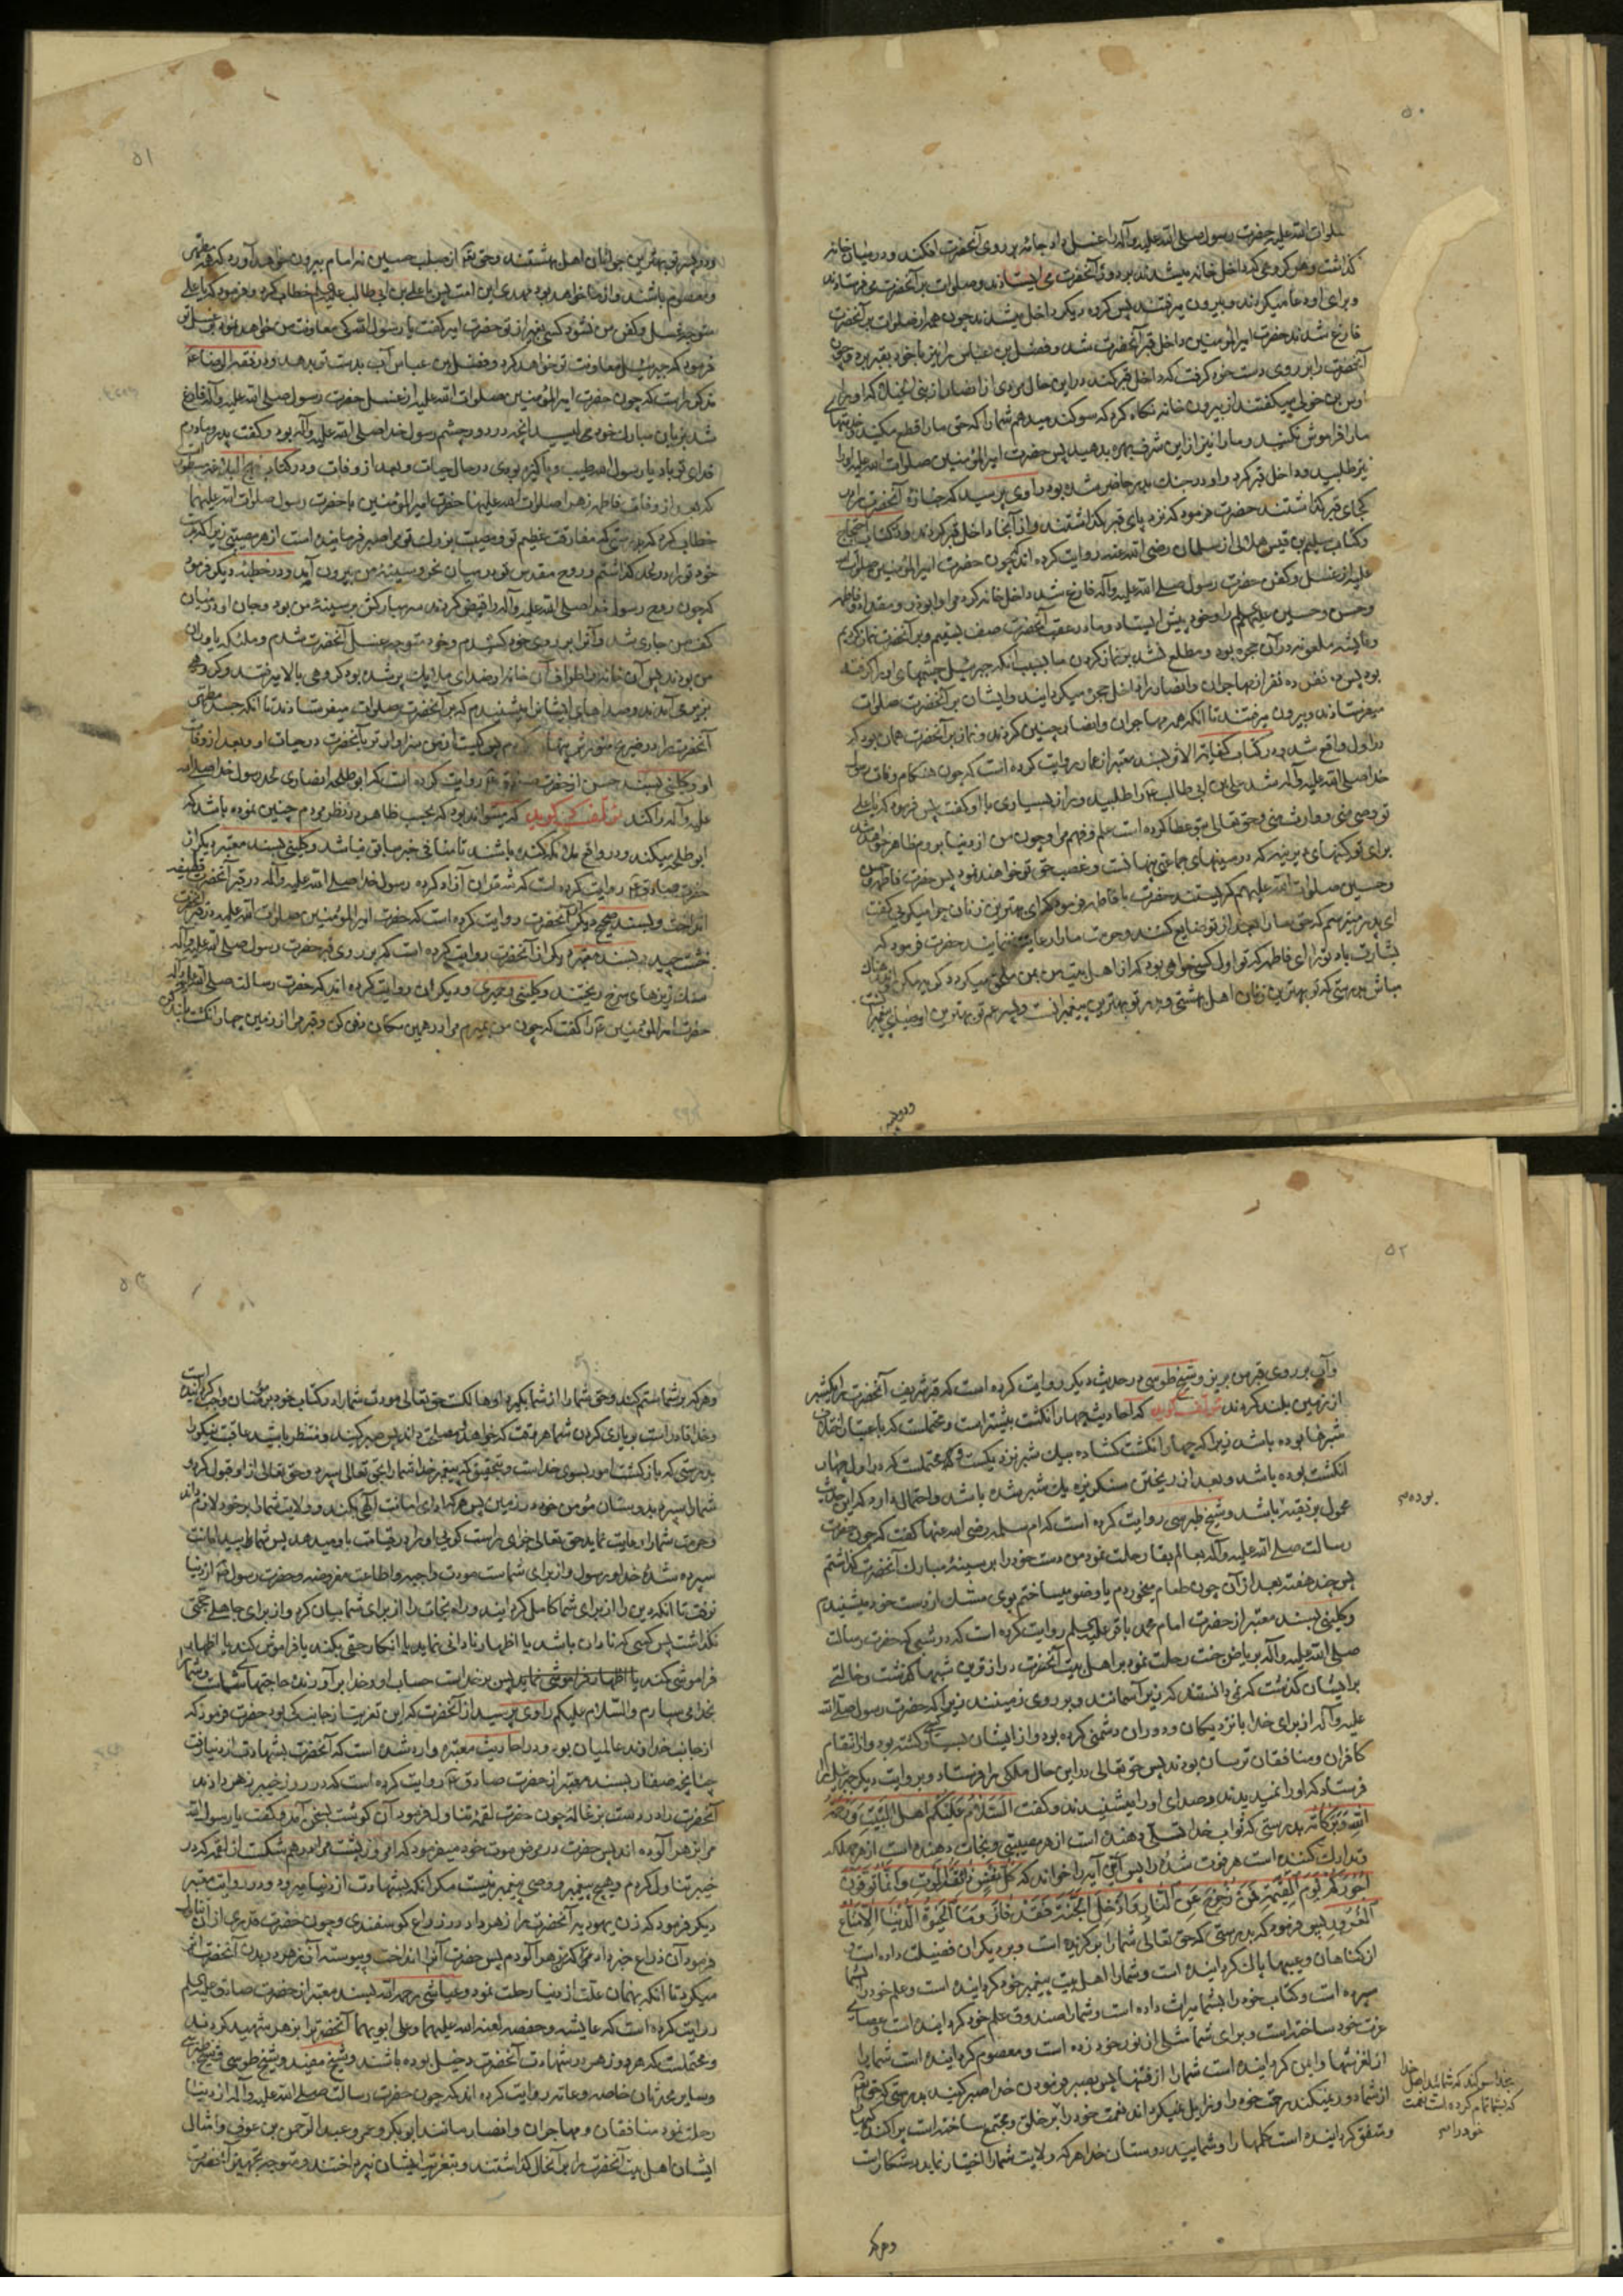 ۵۰
صلوات الله علیه حضرت رسول صلی الله علیه وآله را غسل داد جامه بر روی آنحضرت افکند و در میان خانه
گذاشت و هر گروهی که داخل خانه میشدند بر دور آنحضرت می ایستادند و صلوات بر آنحضرت می فرستادند
و برای او دعا میکردند و بیرون میرفتند پس گروه دیگر داخل میشدند چون همه از صلوات بر آنحضرت
فارغ شدند حضرت امیرالمؤمنین داخل قبر آنحضرت شد و فضل بن عباس را نیز با خود بقبر برد و چون
آنحضرت را بر روی دست خود گرفت که داخل قبر کند در این حال مردی از انصار از بنی الخیلا که او را
اوس بن خولی میگفتند از بیرون خانه نگاه کرد که سوگند میدهم شما را که حق ما را قطع مکنید
ما را فراموش نکنید و ما را نیز از این شرف بهره بدهید پس حضرت امیرالمؤمنین صلوات الله علیه او را
نیز طلبید و داخل قبر کرد و او در جنك بدر حاضر شده بود راوی پرسید که جنازه آنحضرت را در
کجای قبر گذاشتند حضرت فرمود که نزد پای قبر گذاشتند و از آنجا داخل قبر کردند و در کتاب احتجاج
و کتاب سلیم بن قیس هلالی از سلمان رضی الله عنه روایت کرده اند که چون حضرت امیرالمؤمنین صلوات الله
علیه از غسل و کفن حضرت رسول صلی الله علیه وآله فارغ شد داخل خانه کرد مرا و ابوذر و مقداد و فاطمه
و حسن و حسین علیهم السلم را و خود پیش ایستاد و ما در عقب آنحضرت صف بستیم و بر آنحضرت نماز کردیم
و عایشه ملعونه در آن حجره بود و مطلع نشد بر نماز کردن ما بسبب آنکه جبرئیل چشمهای او را گرفته
بود پس ده نفر ده نفر از مهاجران و انصار را داخل حجره میگردانید و ایشان بر آنحضرت صلوات
میفرستادند و بیرون میرفتند تا آنکه همه مهاجران و انصار چنین کردند و نماز بر آنحضرت همان بود که
در اول واقع شد و در کتاب کفایة الاثر بسند معتبر از عمار روایت کرده است که چون هنگام وفات رسول
خدا صلی الله علیه وآله شد علی بن ابی طالب را طلبید و راز بسیاری با او گفت پس فرمود که یا علی
تو وصی منی و وارث منی و حق تعالی بتو عطا کرده است علم و فهم مرا و چون من از دنیا بروم ظاهر خواهد شد
برای تو کینهای دیرینه که در سینهای جماعتی پنهانست و غصب حق تو خواهند نمود پس حضرت فاطمه و حسن
و حسین صلوات الله علیهم گریستند حضرت با فاطمه فرمود که ای بهترین زنان چرا میگریی گفت
ای پدر میترسم که حق ما را بعد از تو ضایع کنند و حرمت ما را رعایت ننمایند حضرت فرمود که
بشارت باد تو را ای فاطمه که تو اول کسی خواهی بود که از اهل بیت من بمن ملحق میگردد گریه مکن و اندوهناك
مباش بدرستی که تو بهترین زنان اهل بهشتی و پدر تو بهترین پیغمبرانست و پسر عم تو بهترین اوصیای پیغمبرانست
و دو پسر
۵۱
و دو پسر تو بهترین جوانان اهل بهشتند و حق تعالی از صلب حسین نه امام بیرون خواهد آورد که همه مطهر
و معصوم باشند و از ما خواهد بود مهدی این امت پس با علی بن ابی طالب علیه السلام خطاب کرد و فرمود که یا علی
متوجه غسل و کفن من نشود کسی بغیر از تو حضرت امیر گفت یا رسول الله کی معاونت من خواهد نمود بر غسل تو
فرمود که جبرئیل معاونت تو خواهد کرد و فضل بن عباس آب بدست تو بدهد و در فقه الرضا
مذکور است که چون حضرت امیرالمؤمنین صلوات الله علیه از غسل حضرت رسول صلی الله علیه وآله فارغ
شد بزبان مبارك خود می لیسید آنچه در دور چشم رسول خدا صلی الله علیه وآله بود و گفت پدر و مادرم
فدای تو باد یا رسول الله طیب و پاکیزه بودی در حال حیات و بعد از وفات و در کتاب نهج البلاغه مسطور است
که بعد از وفات فاطمه زهرا صلوات الله علیها حضرت امیرالمؤمنین با حضرت رسول صلوات الله علیهما
خطاب کرد که بدرستی که مفارقت عظیم تو و مصیبت بزرك تو مرا صبر فرماینده است از هر مصیبتی زیرا که بدست
خود تو را در لحد گذاشتم و روح مقدس تو در میان نحر و سینه من بیرون آمد و در خطبه دیگر فرمود
که چون روح رسول خدا صلی الله علیه وآله را قبض کردند سر مبارکش بر سینه من بود و جان او در میان
کف من جاری شد و آنرا بر روی خود کشیدم و خود متوجه غسل آنحضرت شدم و ملئکه یاوران
من بودند پس آن خانه و اطراف آن خانه از صدای ملائکه پر شده بود گروهی بالا میرفتند و گروهی
بزیر می آمدند و صداهای ایشان را میشنیدم که بر آنحضرت صلوات میفرستادند تا آنکه جسد مطهر
آنحضرت را در ضریح منورش پنهان کردیم پس کیست از من سزاوارتر بآنحضرت در حیات او و بعد از وفات
او و کلینی بسند حسن از حضرت صادق روایت کرده است که ابو طلحه انصاری لحد رسول خدا صلی الله
علیه وآله را کند مؤلف گوید که میتواند بود که بحسب ظاهر در نظر مردم چنین نموده باشد که
ابو طلحه میکند و در واقع ملائکه کنده باشند تا منافی خبر سابق نباشد و کلینی بسند معتبر دیگر از
حضرت صادق روایت کرده است که شقران آزاد کرده رسول خدا صلی الله علیه وآله در قبر آنحضرت قطیفه
انداخت و بسند صحیح دیگر از آنحضرت روایت کرده است که حضرت امیرالمؤمنین صلوات الله علیه در قبر آنحضرت
خشت چید و بسند معتبر دیگر از آنحضرت روایت کرده است که بر روی قبر حضرت رسول صلی الله علیه وآله
سنك ریزهای سرخ ریختند و کلینی و حمیری و دیگران روایت کرده اند که حضرت رسالت صلی الله علیه وآله
حضرت امیرالمؤمنین را گفت که چون من بمیرم مرا در همین مکان دفن کن و قبر مرا از زمین چهار انگشت بلند کن
۵۲
و آب بر روی قبر من بریز و شیخ طوسی در حدیث دیگر روایت کرده است که قبر شریف آنحضرت را یکشبر
از زمین بلند کردند مؤلف گوید که احادیث چهار انگشت بیشتر است و محتملست که باعتبار اختلاف
شبرها بوده باشد زیرا که چهار انگشت گشاده بیك شبر نزدیکست و محتملست که در اول چهار
انگشت بوده باشد و بعد از ریختن سنگریزه یك شبر شده باشد و احتمال دارد که این حدیث
محمول بر تقیه باشد و شیخ طبرسی روایت کرده است که ام سلمه رضی الله عنها گفت که چون حضرت
رسالت صلی الله علیه وآله بعالم بقا رحلت نمود من دست خود را بر سینه مبارك آنحضرت گذاشتم
پس چند هفته بعد از آن چون طعام میخوردم یا وضو میساختم بوی مشك از دست خود میشنیدم
و کلینی بسند معتبر از حضرت امام محمد باقر علیه السلم روایت کرده است که در شبی که حضرت رسالت
صلی الله علیه وآله بریاض جنت رحلت نمود بر اهل بیت آنحضرت درازترین شبها گذشت و حالتی
بر ایشان گذشت که نمی دانستند که زیر آسمانند و بر روی زمینند زیرا که حضرت رسول صلی الله
علیه وآله از برای خدا با نزدیکان و دوران دشمنی کرده بود و از ایشان بسیار کشته بود و از انتقام
کافران و منافقان ترسان بودند پس حق تعالی در این حال ملکی را فرستاد و بروایت دیگر جبرئیل را
فرستاد که او را نمیدیدند و صدای او را میشنیدند و گفت السلام علیکم اهل البیت و رحمة
الله و برکاته بدرستی که ثواب خدا تسلی دهنده است از هر مصیبتی و نجات دهنده است از هر مهلکه
و تدارك کننده است هر فوت شده را پس این آیه را خواند که کل نفس ذائقة الموت و انما توفون
اجورکم یوم القیمة فمن زحزح عن النار و ادخل الجنة فقد فاز و ما الحیوة الدنیا الا متاع
الغرور پس فرمود که بدرستی که حق تعالی شما را برگزیده است و بر دیگران فضیلت داده است و
از گناهان و عیبها پاك گردانیده است و شما را اهل بیت پیغمبر خود گردانیده است و علم خود را بشما
سپرده است و کتاب خود را بشما میراث داده است و شما را صندوق علم خود گردانیده است و عصای
عزت خود ساخته است و برای شما مثلی از نور خود زده است و معصوم گردانیده است شما را
از لغزشها و ایمن گردانیده است شما را از فتنها پس بصبر فرمودن خدا صبر کنید بدرستی که حق تعالی
از شما دور نمیکند رحمت خود را و زایل نمیگرداند نعمت خود را بر خلق و مجتمع ساخته است پراکندگیها
و متفق گردانیده است کلمها را و شمایید دوستان خدا هر که ولایت شما را اختیار نماید رستگار است
بوده
بخدا سوگند که شمائید اهل خدا
که بشما تمام کرده است نعمت
خود را
و هر که
۵۳
و هر که بر شما ستم کند و حق شما را از شما بگیرد او هالکست حق تعالی مودت شما را در کتاب خود بر مؤمنان واجب گردانیده است
و خدا قادر است بر یاری کردن شما هر وقت که خواهد و مصلحت داند پس صبر کنید و منتظر باشید عاقبت نیکو را
بدرستی که بازگشت امور بسوی خداست و بتحقیق که پیغمبر خدا شما را بحق تعالی سپرد و حق تعالی از او قبول کرد و
شما را سپرده بدوستان مؤمن خود در زمین پس هر که ادای امانت الهی بکند و ولایت شما را بر خود لازم داند
و حرمت شما را رعایت نماید حق تعالی جزای راست گویی او را در قیامت باو میدهد پس شمائید امانت
سپرده شده خدا و رسول و از برای شماست مودت واجبه و اطاعت مفروضه و حضرت رسول از دنیا
نرفت تا آنکه دین را از برای شما کامل گردانید و راه نجات را از برای شما بیان کرد و از برای جاهلی حجتی
نگذاشت پس کسی که نادان باشد یا اظهار نادانی نماید یا انکار حق بکند یا فراموش کند یا اظهار
فراموشی کند یا اظهار فراموشی نماید پس بر خداست حساب او و خدا برآورنده حاجتهای شماست و شما را
بخدا می سپارم والسلام علیکم راوی پرسید از آنحضرت که این تعزیت از جانب که بود حضرت فرمود که
از جانب خداوند عالمیان بود و در احادیث معتبره وارد شده است که آنحضرت بشهادت از دنیا رفت
چنانچه صفار بسند معتبر از حضرت صادق روایت کرده است که در روز خیبر زهر دادند
آنحضرت را در دست بزغاله چون حضرت لقمه تناول فرمود آن گوشت بسخن آمد و گفت یا رسول الله
مرا بزهر آلوده اند پس حضرت در مرض موت خود میفرمود که امروز پشت مرا درهم شکست آن لقمه که در
خیبر تناول کردم و هیچ پیغمبر و وصی پیغمبر نیست مگر آنکه بشهادت از دنیا میرود و در روایت معتبر
دیگر فرمود که زن یهودیه آنحضرت را زهر داد در ذراع گوسفندی و چون حضرت قدری از آن تناول
فرمود آن ذراع خبر داد که من زهرآلودم پس حضرت آنرا انداخت و پیوسته آن زهر در بدن آنحضرت اثر
میکرد تا آنکه بهمان علت از دنیا رحلت نمود و عیاشی رحمه الله بسند معتبر از حضرت صادق علیه السلم
روایت کرده است که عایشه و حفصه لعنة الله علیهما و علی ابویهما آنحضرت را بزهر شهید کردند
و محتملست که هر دو زهر در شهادت آنحضرت دخیل بوده باشند و شیخ مفید و شیخ طوسی و شیخ طبرسی
و سایر محدثان خاصه و عامه روایت کرده اند که چون حضرت رسالت صلی الله علیه وآله از دنیا
رحلت نمود منافقان و مهاجران و انصار مانند ابوبکر و عمر و عبدالرحمن بن عوف و امثال
ایشان اهل بیت آنحضرت را بر آنحال گذاشتند و بتعزیت ایشان نپرداختند و متوجه تجهیز آنحضرت